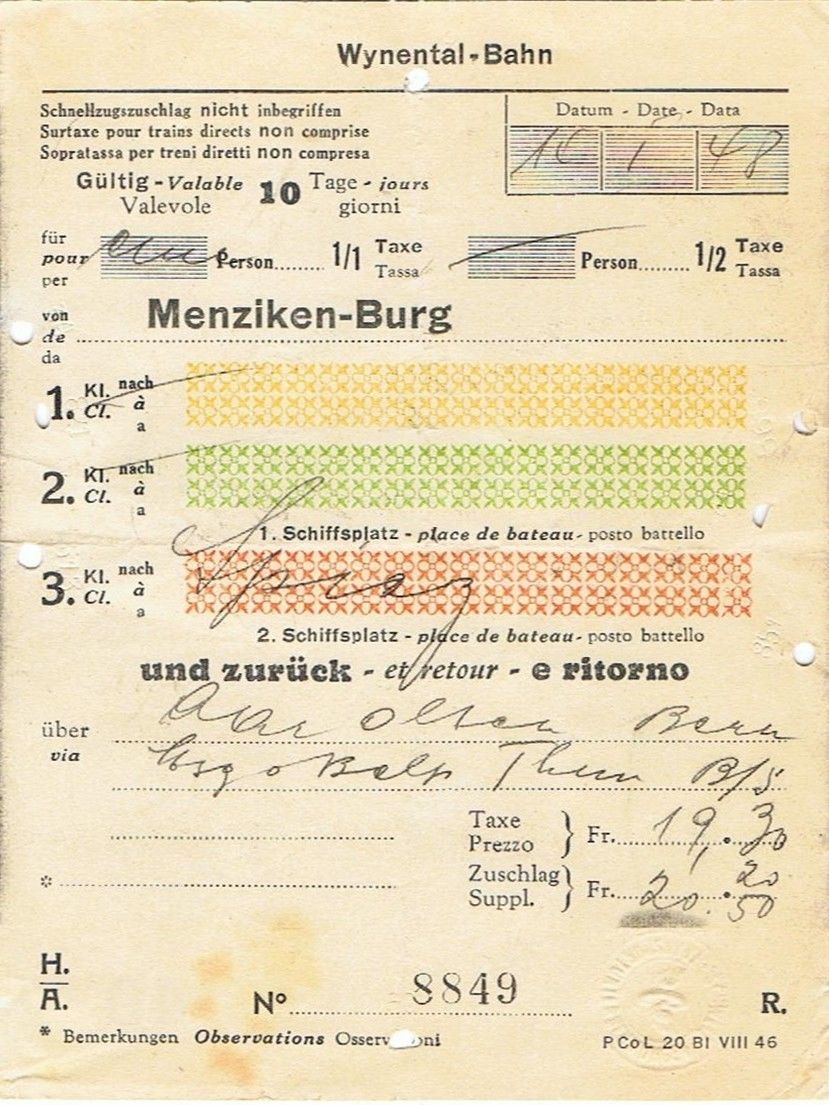 Wynental-Bahn
Schnellzugszuschlag nicht inbegriffen
Surtaxe pour trains directs non comprise
Sopratassa per treni diretti non compresa
Datum - Date - Data
1 48
Gültig - Valable 10 Tage - jours
Valevole giorni
für
pour Person 1/1 Taxe Person 1/2 Taxe
per Tassa Tassa
von
de Menziken-Burg
da
1. Kl. nach
Cl. à
a
2. Kl. nach
Cl. à
a
1. Schiffsplatz - place de bateau - posto battello
3. Kl. nach Spiez
Cl. à
a
2. Schiffsplatz - place de bateau - posto battello
und zurück - et retour - e ritorno
über Olten Bern
via Thun
Taxe
Prezzo } Fr. 19.30
Zuschlag
Suppl. } Fr. 20
20.50
H.
A.
Nº 8849 R.
* Bemerkungen Observations
P CoL 20 Bl VIII 46